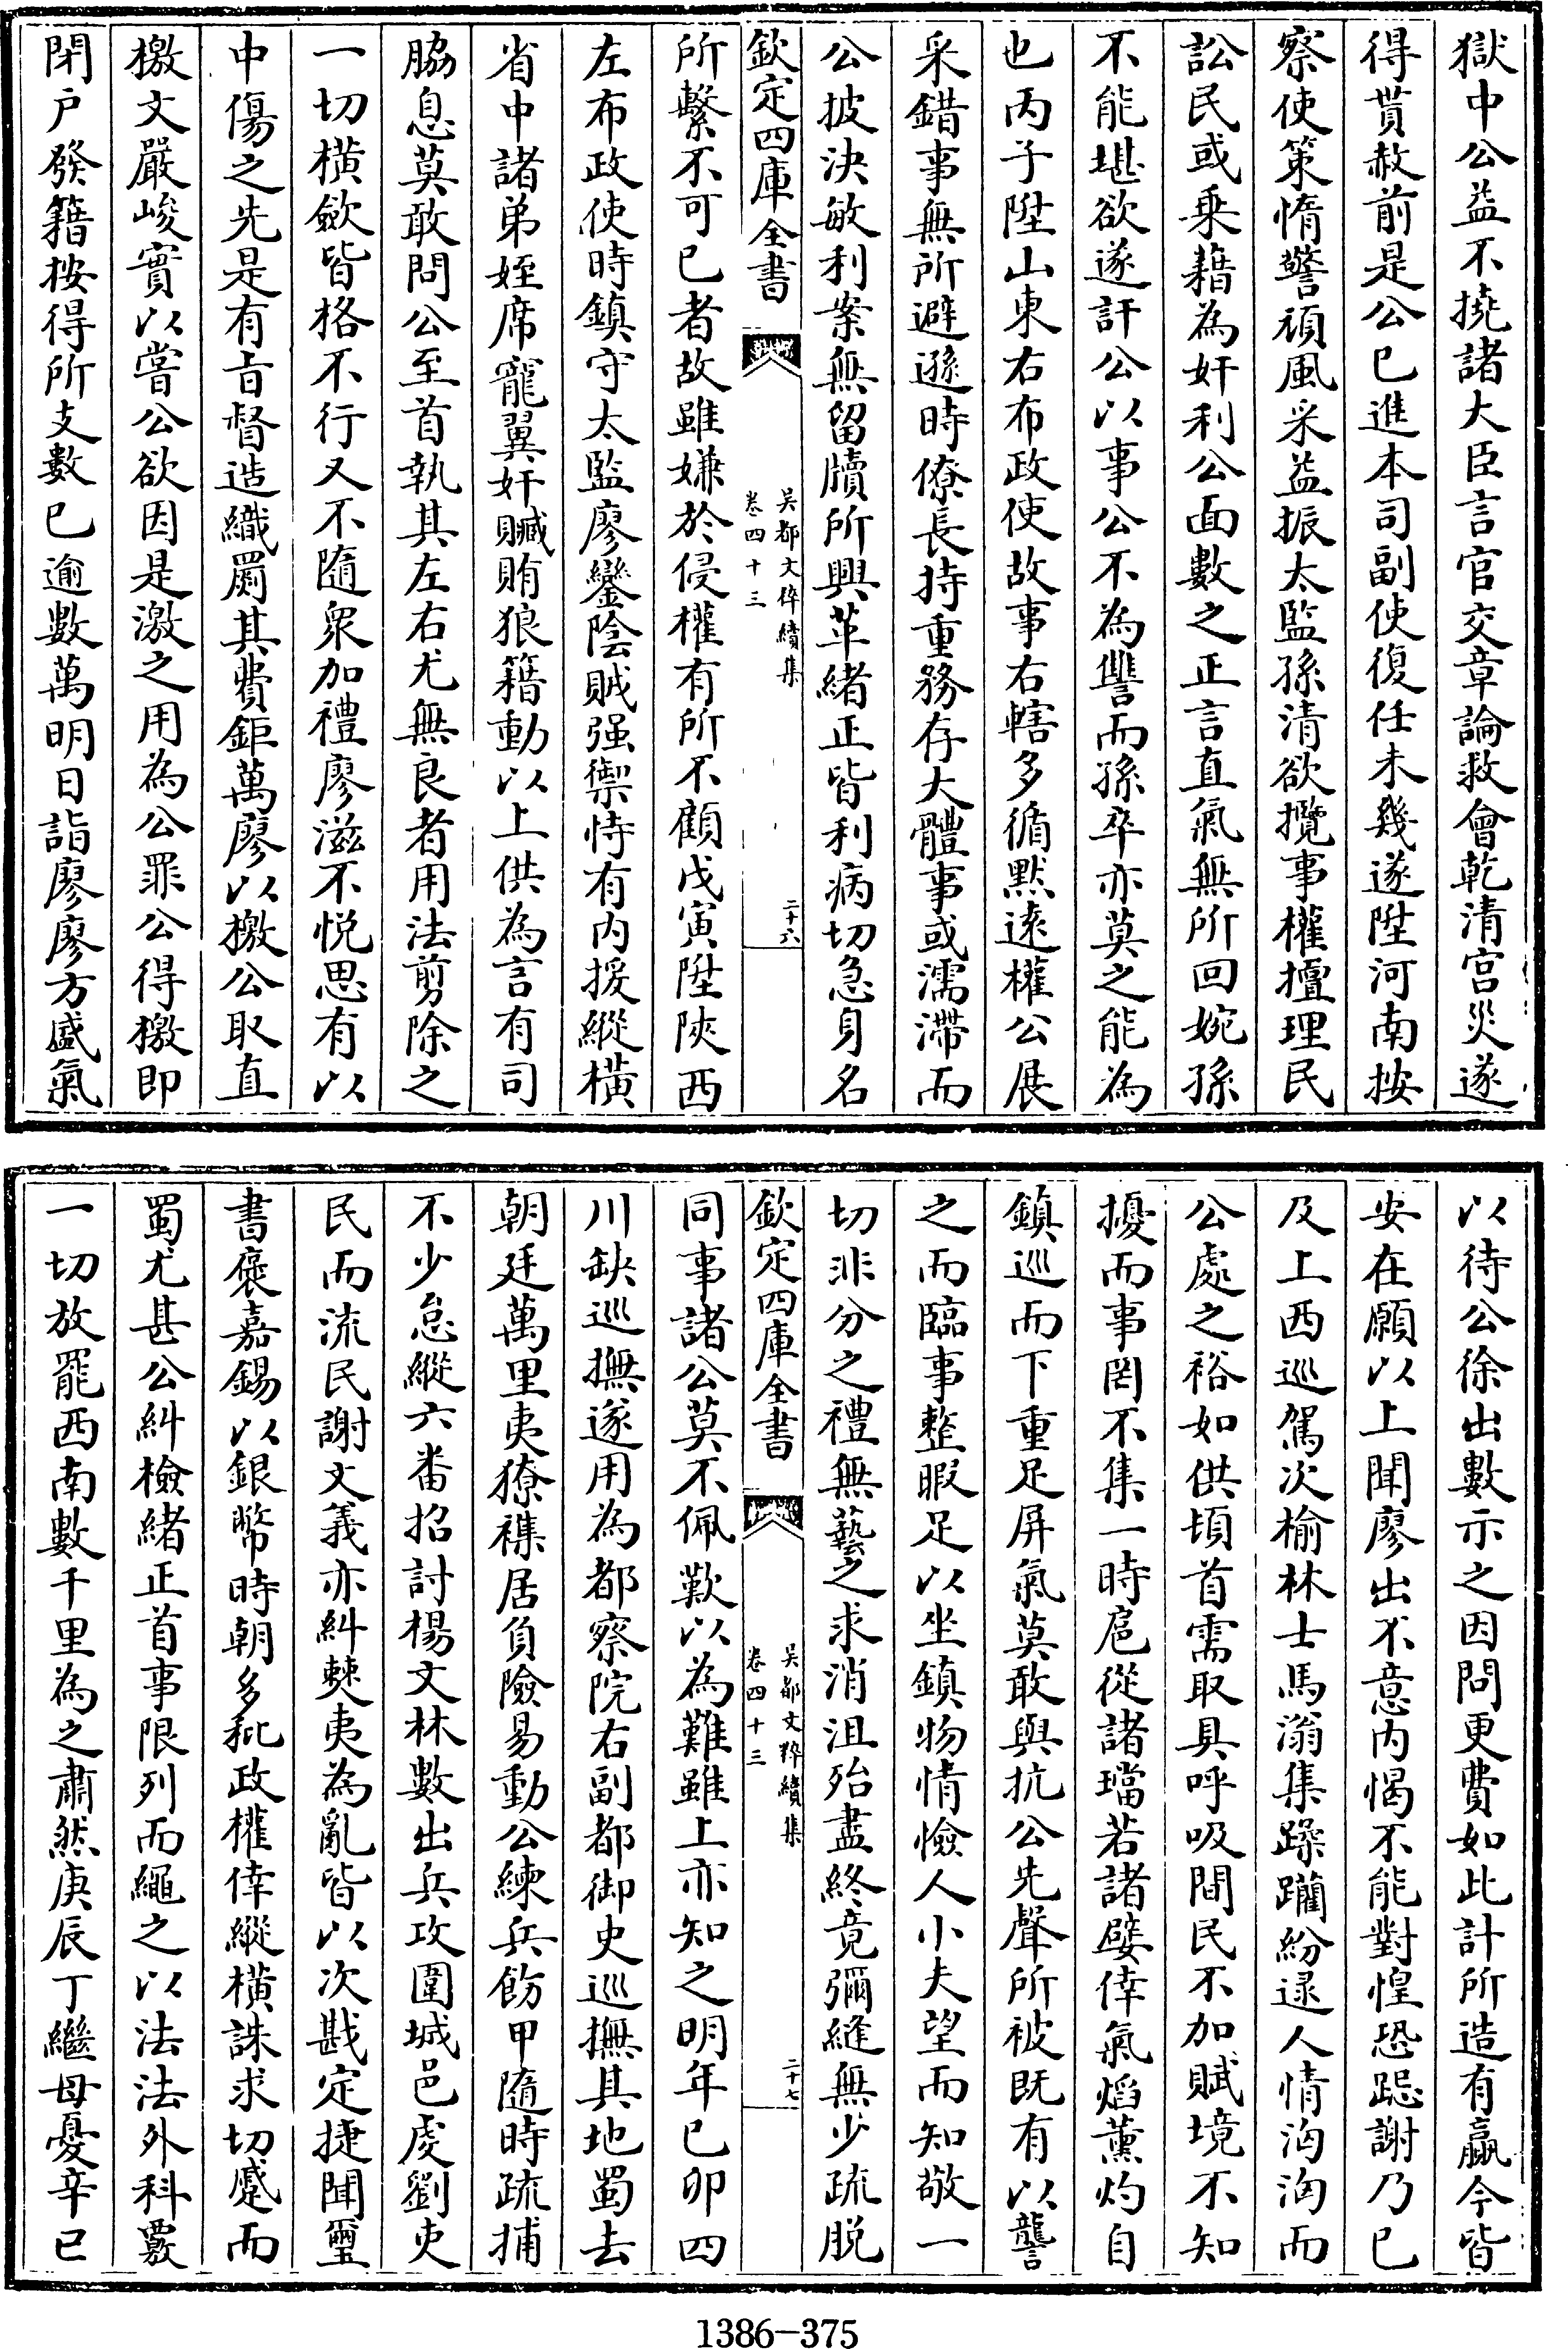 獄中公益不撓諸大臣言官交章論救會乾清宫災遂
得貰赦前是公已進本司副使復任未幾遂陞河南按
察使策惰警頑風采益振太監孫清欲攬事權擅理民
訟民或乗藉為奸利公面數之正言直氣無所回婉孫
不能堪欲遂訐公以事公不為讐而孫卒亦莫之能為
也丙子陞山東右布政使故事右轄多循黙逺權公展
采錯事無所避遜時僚長持重務存大體事或濡滯而
公披决敏利案無留牘所興革緒正皆利病切急身名
欽定四庫全書
吴都文粹續集
卷四十三
二十六
所繫不可已者故雖嫌於侵權有所不顧戊寅陞陜西
左布政使時鎮守太監廖鑾隂賊强禦恃有内援縱横
省中諸弟姪席寵翼奸贓賄狼籍動以上供為言有司
脇息莫敢問公至首執其左右尤無良者用法剪除之
一切横斂皆格不行又不隨衆加禮廖滋不悦思有以
中傷之先是有旨督造織罽其費鉅萬廖以檄公取直
檄文嚴峻實以嘗公欲因是激之用為公罪公得檄即
閉户發籍按得所支數已逾數萬明日詣廖廖方盛氣
以待公徐出數示之因問更費如此計所造有贏今皆
安在願以上聞廖出不意内愒不能對惶恐跽謝乃已
及上西巡駕次榆林士馬滃集躁躪紛逯人情洶洶而
公處之裕如供頃首需取具呼吸間民不加賦境不知
擾而事罔不集一時扈從諸璫若諸嬖倖氣熖薰灼自
鎮巡而下重足屏氣莫敢與抗公先聲所被既有以讋
之而臨事整暇足以坐鎮物情憸人小夫望而知敬一
切非分之禮無藝之求消沮殆盡終竟彌縫無少疏脱
欽定四庫全書
吴都文粹續集
卷四十三
二十七
同事諸公莫不佩歎以為難雖上亦知之明年已卯四
川缺巡撫遂用為都察院右副都御史巡撫其地蜀去
朝廷萬里夷獠襍居負險易動公練兵飭甲隨時疏捕
不少怠縱六番招討楊文林數出兵攻圍城邑虔劉吏
民而流民謝文義亦糾僰夷為亂皆以次戡定捷聞璽
書褒嘉錫以銀幣時朝多秕政權倖縱横誅求切蹙而
蜀尤甚公糾檢緒正首事限列而繩之以法法外科斂
一切放罷西南數千里為之肅然庚辰丁繼母憂辛巳
1386-375